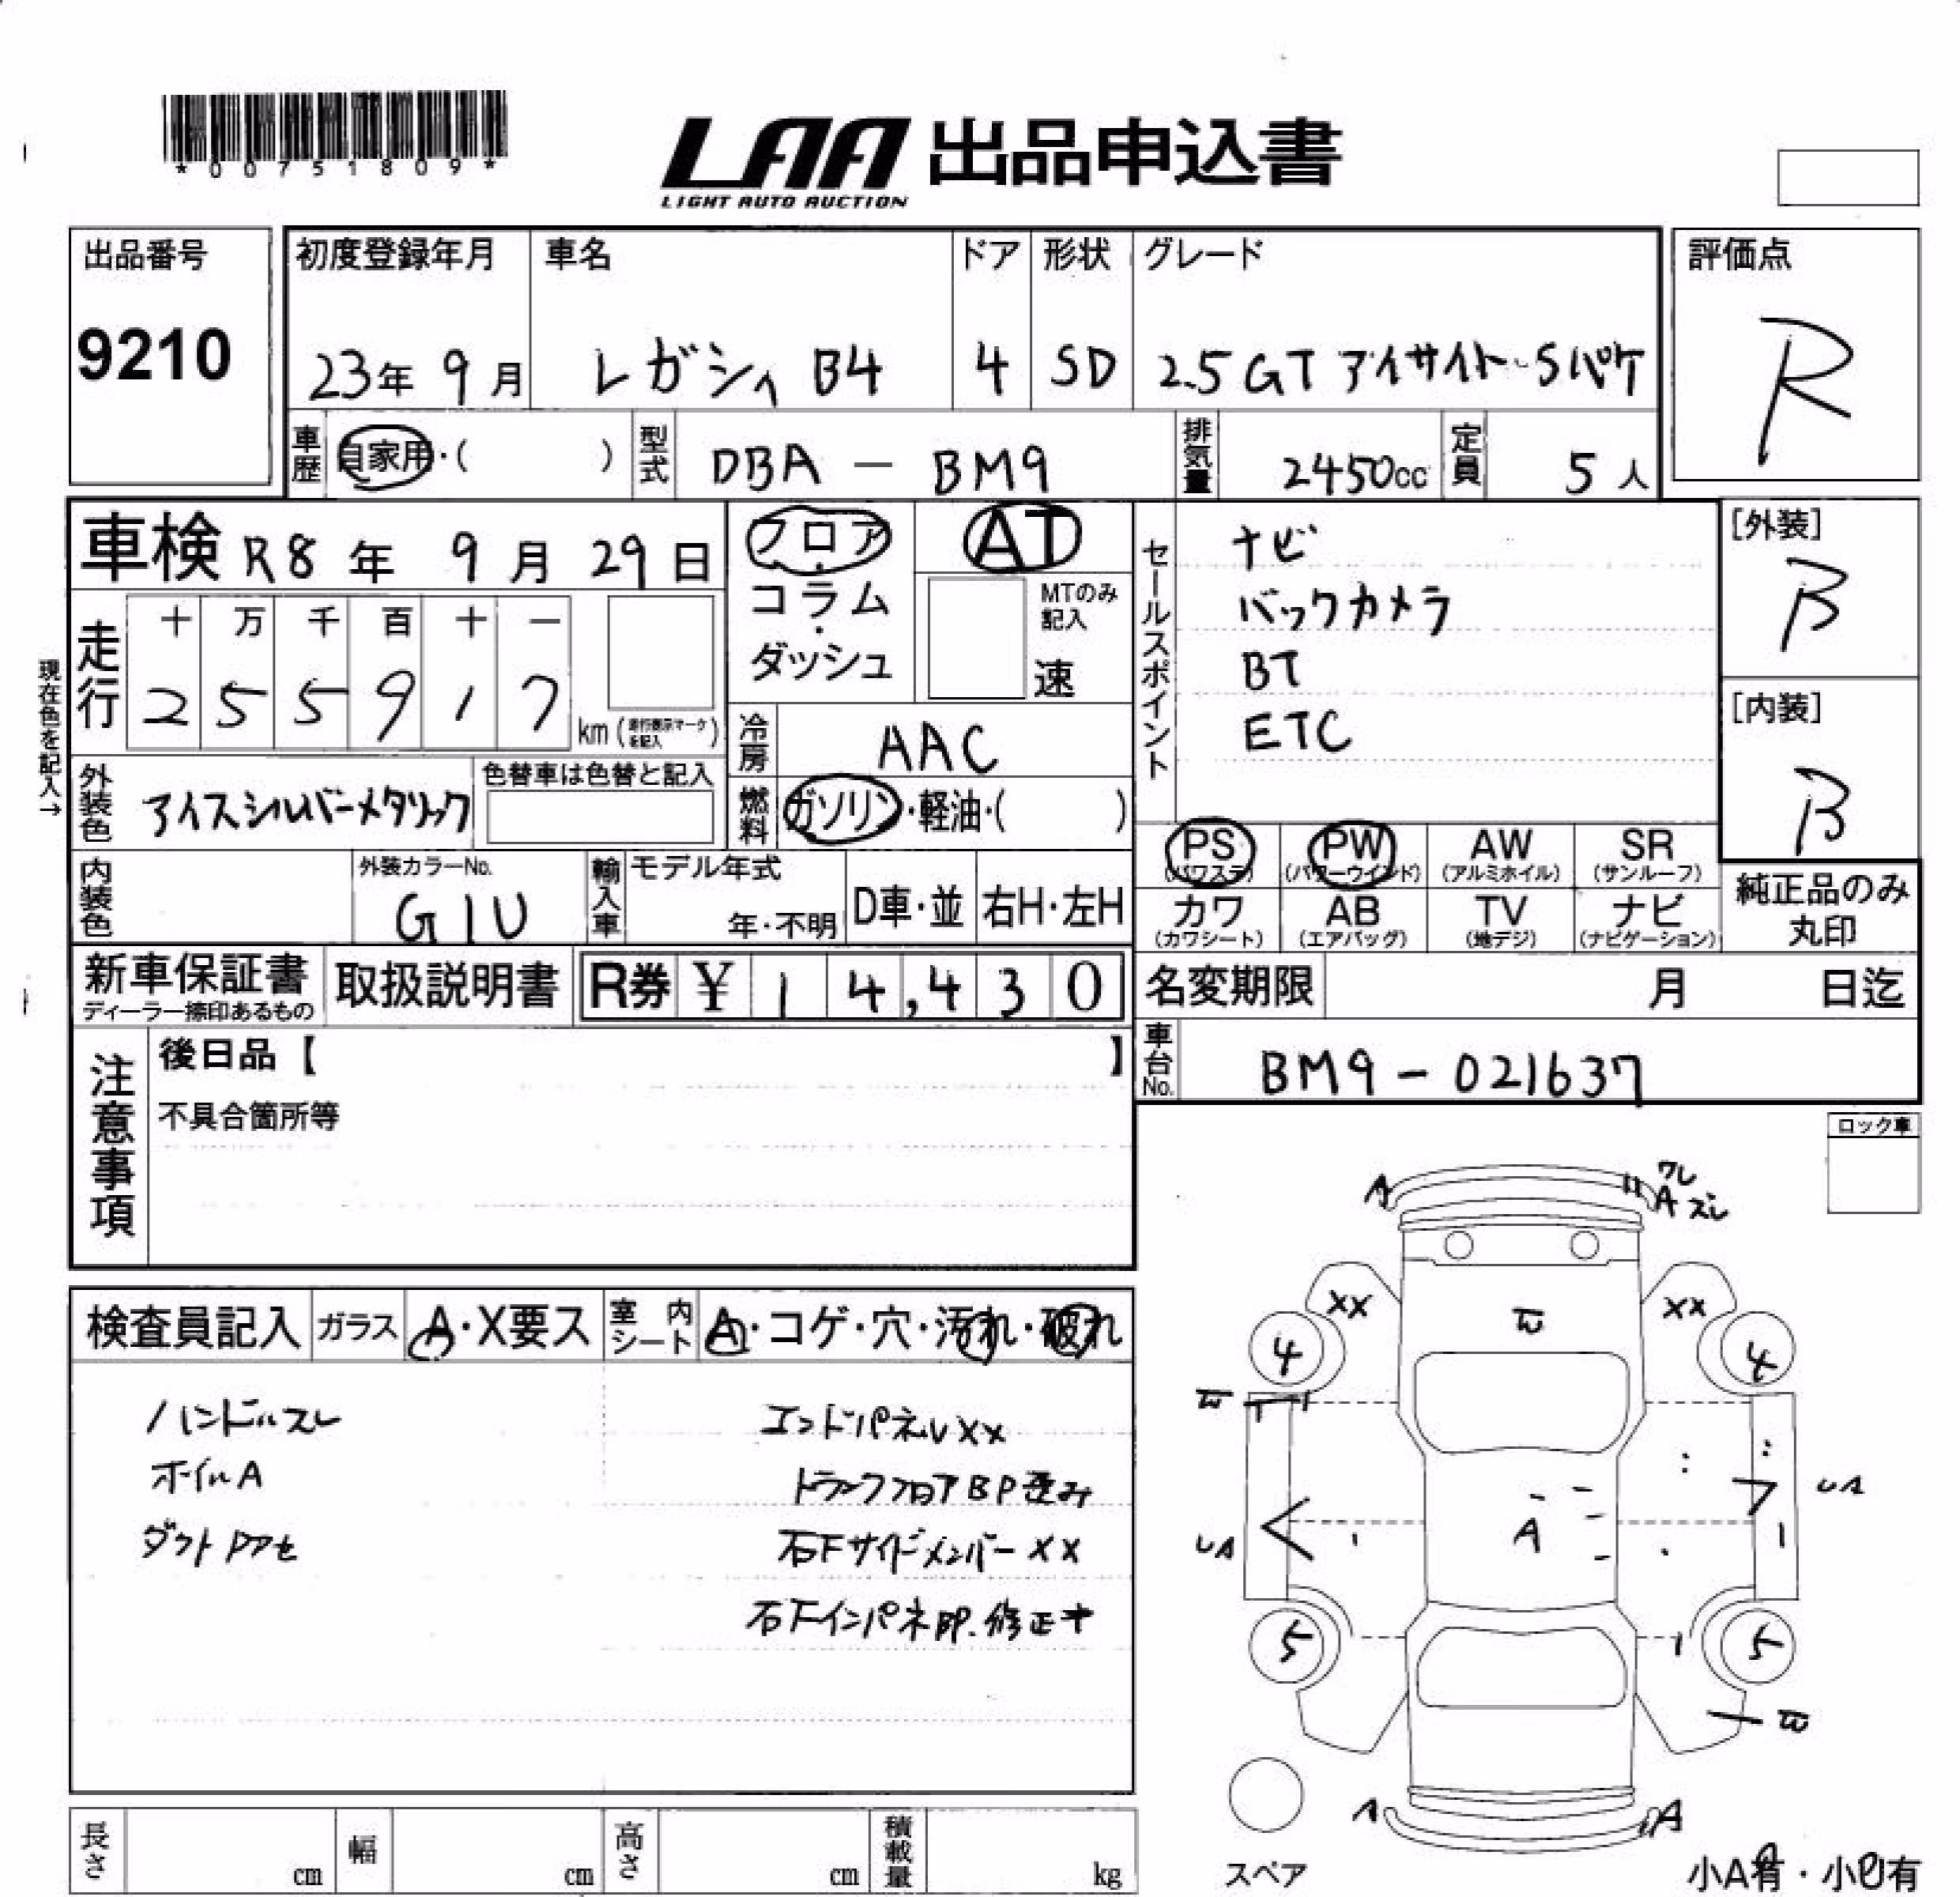 *00751809*
LAA 出品申込書
LIGHT AUTO AUCTION
出品番号
9210
初度登録年月 車名 ドア 形状 グレード
23年 9月 レガシィ B4 4 SD 2.5GT アイサイト Sパケ
評価点
R
車歴 自家用・( ) 型式 DBA - BM9 排気量 2450cc 定員 5人
車検 R8年 9月 29日
フロア・コラム・ダッシュ
AT
MTのみ記入
速
セールスポイント
ナビ
バックカメラ
BT
ETC
[外装]
B
[内装]
B
現在色を記入→
走行 十 万 千 百 十 一
2 5 5 9 1 7 km (走行表示マークを記入)
冷房 AAC
外装色 アイスシルバーメタリック 色替車は色替と記入
燃料 ガソリン・軽油・( )
PS (パワステ) PW (パワーウインド) AW (アルミホイル) SR (サンルーフ)
カワ (カワシート) AB (エアバッグ) TV (地デジ) ナビ (ナビゲーション)
純正品のみ丸印
内装色 外装カラーNo. G1U 輸入車 モデル年式 年・不明 D車・並 右H・左H
新車保証書 ディーラー捺印あるもの 取扱説明書 R券 ¥ 14,430
名変期限 月 日迄
車台No. BM9-021637
注意事項
後日品【 】
不具合箇所等
ロック車
検査員記入 ガラス A・X要ス 室内シート A・コゲ・穴・汚れ・破れ
ハンドルスレ
ホイルA
エンドパネルXX
トランクフロアBP歪み
右下サイドメンバーXX
右下インパネBP.修正キ
ワレ
A
A ズレ
XX
XX
4
4
A
5
5
A
A
スペア
小A有・小U有
長さ cm 幅 cm 高さ cm 積載量 kg